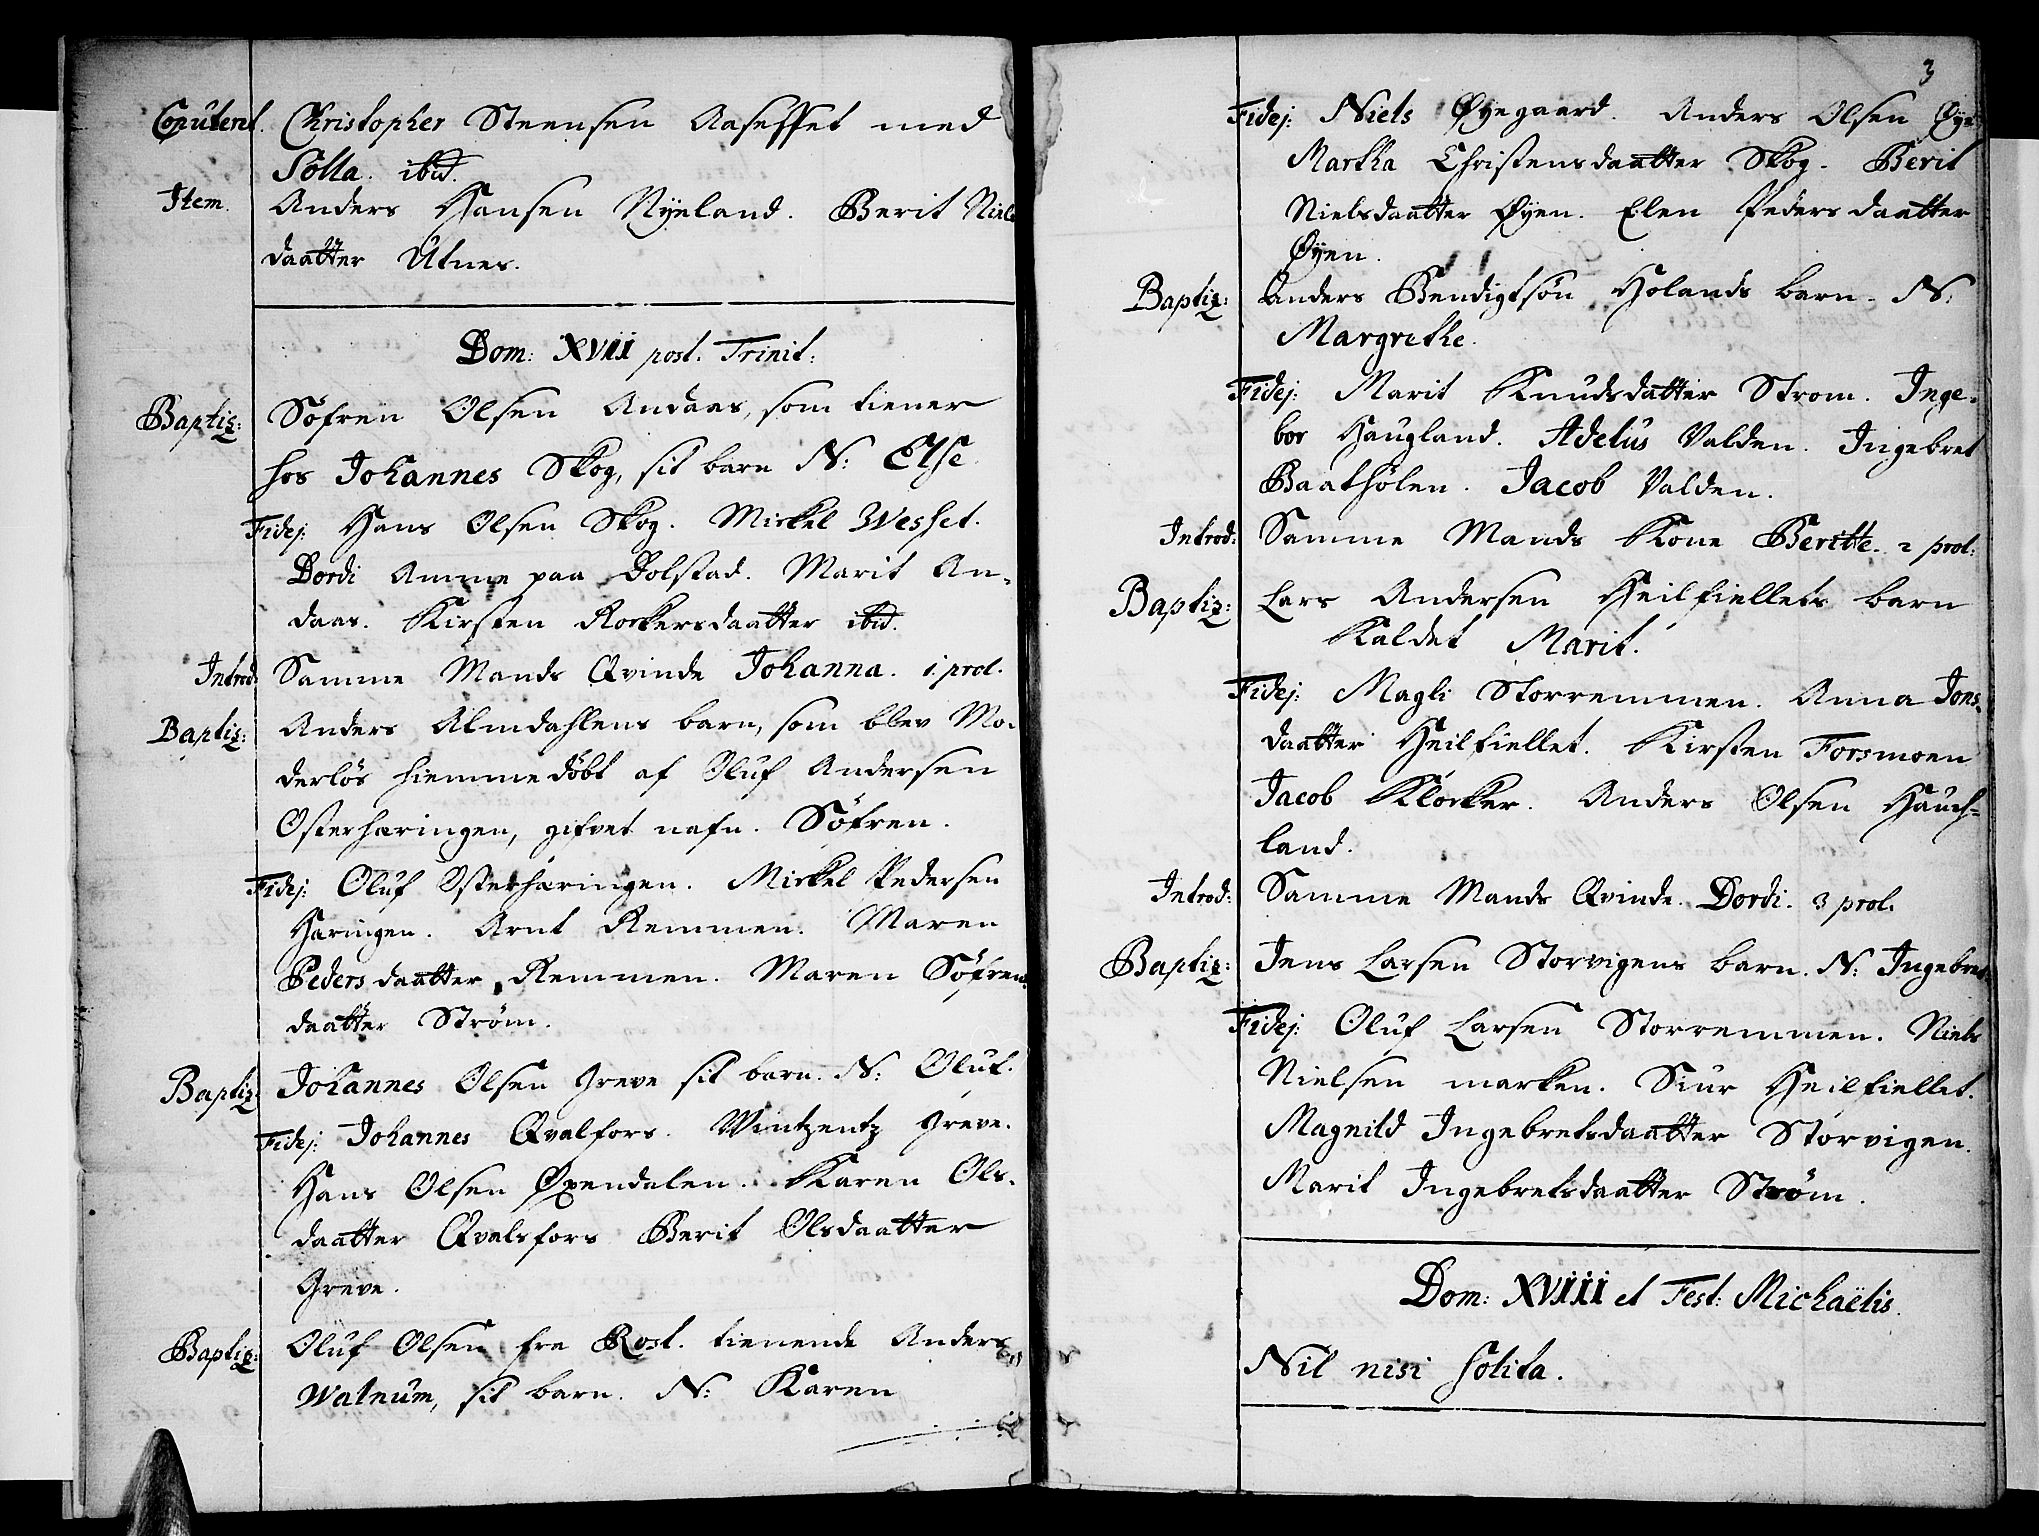 Copuleret. Christopher Steensen Aaseffet med
Sölla. ibid.
Item. Anders Hansen Nyeland. Berit Niels
daatter Utnes.
Dom: XVII post. Trinit:
Baptiz: Söfren Olsen Andaas, som tiener
hos Johannes Skog, sit barn N: Else.
Fidej: Hans Olsen Skog. Mickel Wesset.
Dordi Amme paa Dolstad. Marit An-
daas. Kirsten Rockersdaatter ibid.
Introd: Samme Mands Qvinde Johanna. 1. prol.
Baptiz: Anders Almdahlens barn, som blev Mo-
derlös hiemmedöbt af Oluf Andersen
Osterhæringen, gifvet nafn. Söfren.
Fidej: Oluf Osterhæringen. Mickel Pedersen
Hæringen. Arnt Remmen. Maren
Pedersdaatter Remmen. Maren Söfrens
daatter Ström.
Baptiz: Johannes Olsen Greve sit barn. N: Oluf.
Fidej: Johannes Qvalfors. Wintzentz Greve.
Hans Olsen Øxendalen. Karen Ols-
daatter Qvalsfors Berit Olsdaatter
Greve.
Baptiz: Oluf Olsen fra Rost. tienende Anders
Walnum, sit barn. N: Karen
3
Fidej: Niels Øyegaard. Anders Olsen Øye
Martha Christensdaatter Skog. Berit
Nielsdaatter Øyen. Elen Pedersdaatter
Øyen.
Baptiz: Anders Bendigtsön Holands barn. N:
Margrethe.
Fidej: Marit Knudsdatter Strom. Inge-
bor Haugland. Adelus Valden. Ingebret
Baathölen. Jacob Valden.
Introd: Samme Mands Kone Beritte. 2 prol:
Baptiz: Lars Andersen Heilfiellets barn
Kaldet Marit.
Fidej: Magli Storremmen. Anna Jons-
daatter Heilfiellet. Kirsten Forsmoen
Jacob Klocker. Anders Olsen Hauch-
land.
Introd: Samme Mands Qvinde. Dordi. 3 prol.
Baptiz: Jens Larsen Storvigens barn. N: Ingebret
Fidej: Oluf Larsen Storremmen. Niels
Nielsen marken. Siur Heilfiellet.
Magnild Ingebretsdaatter Storvigen.
Marit Ingebretsdaatter Ström.
Dom: XVIII et Fest: Michaëlis.
Nil nisi solita.